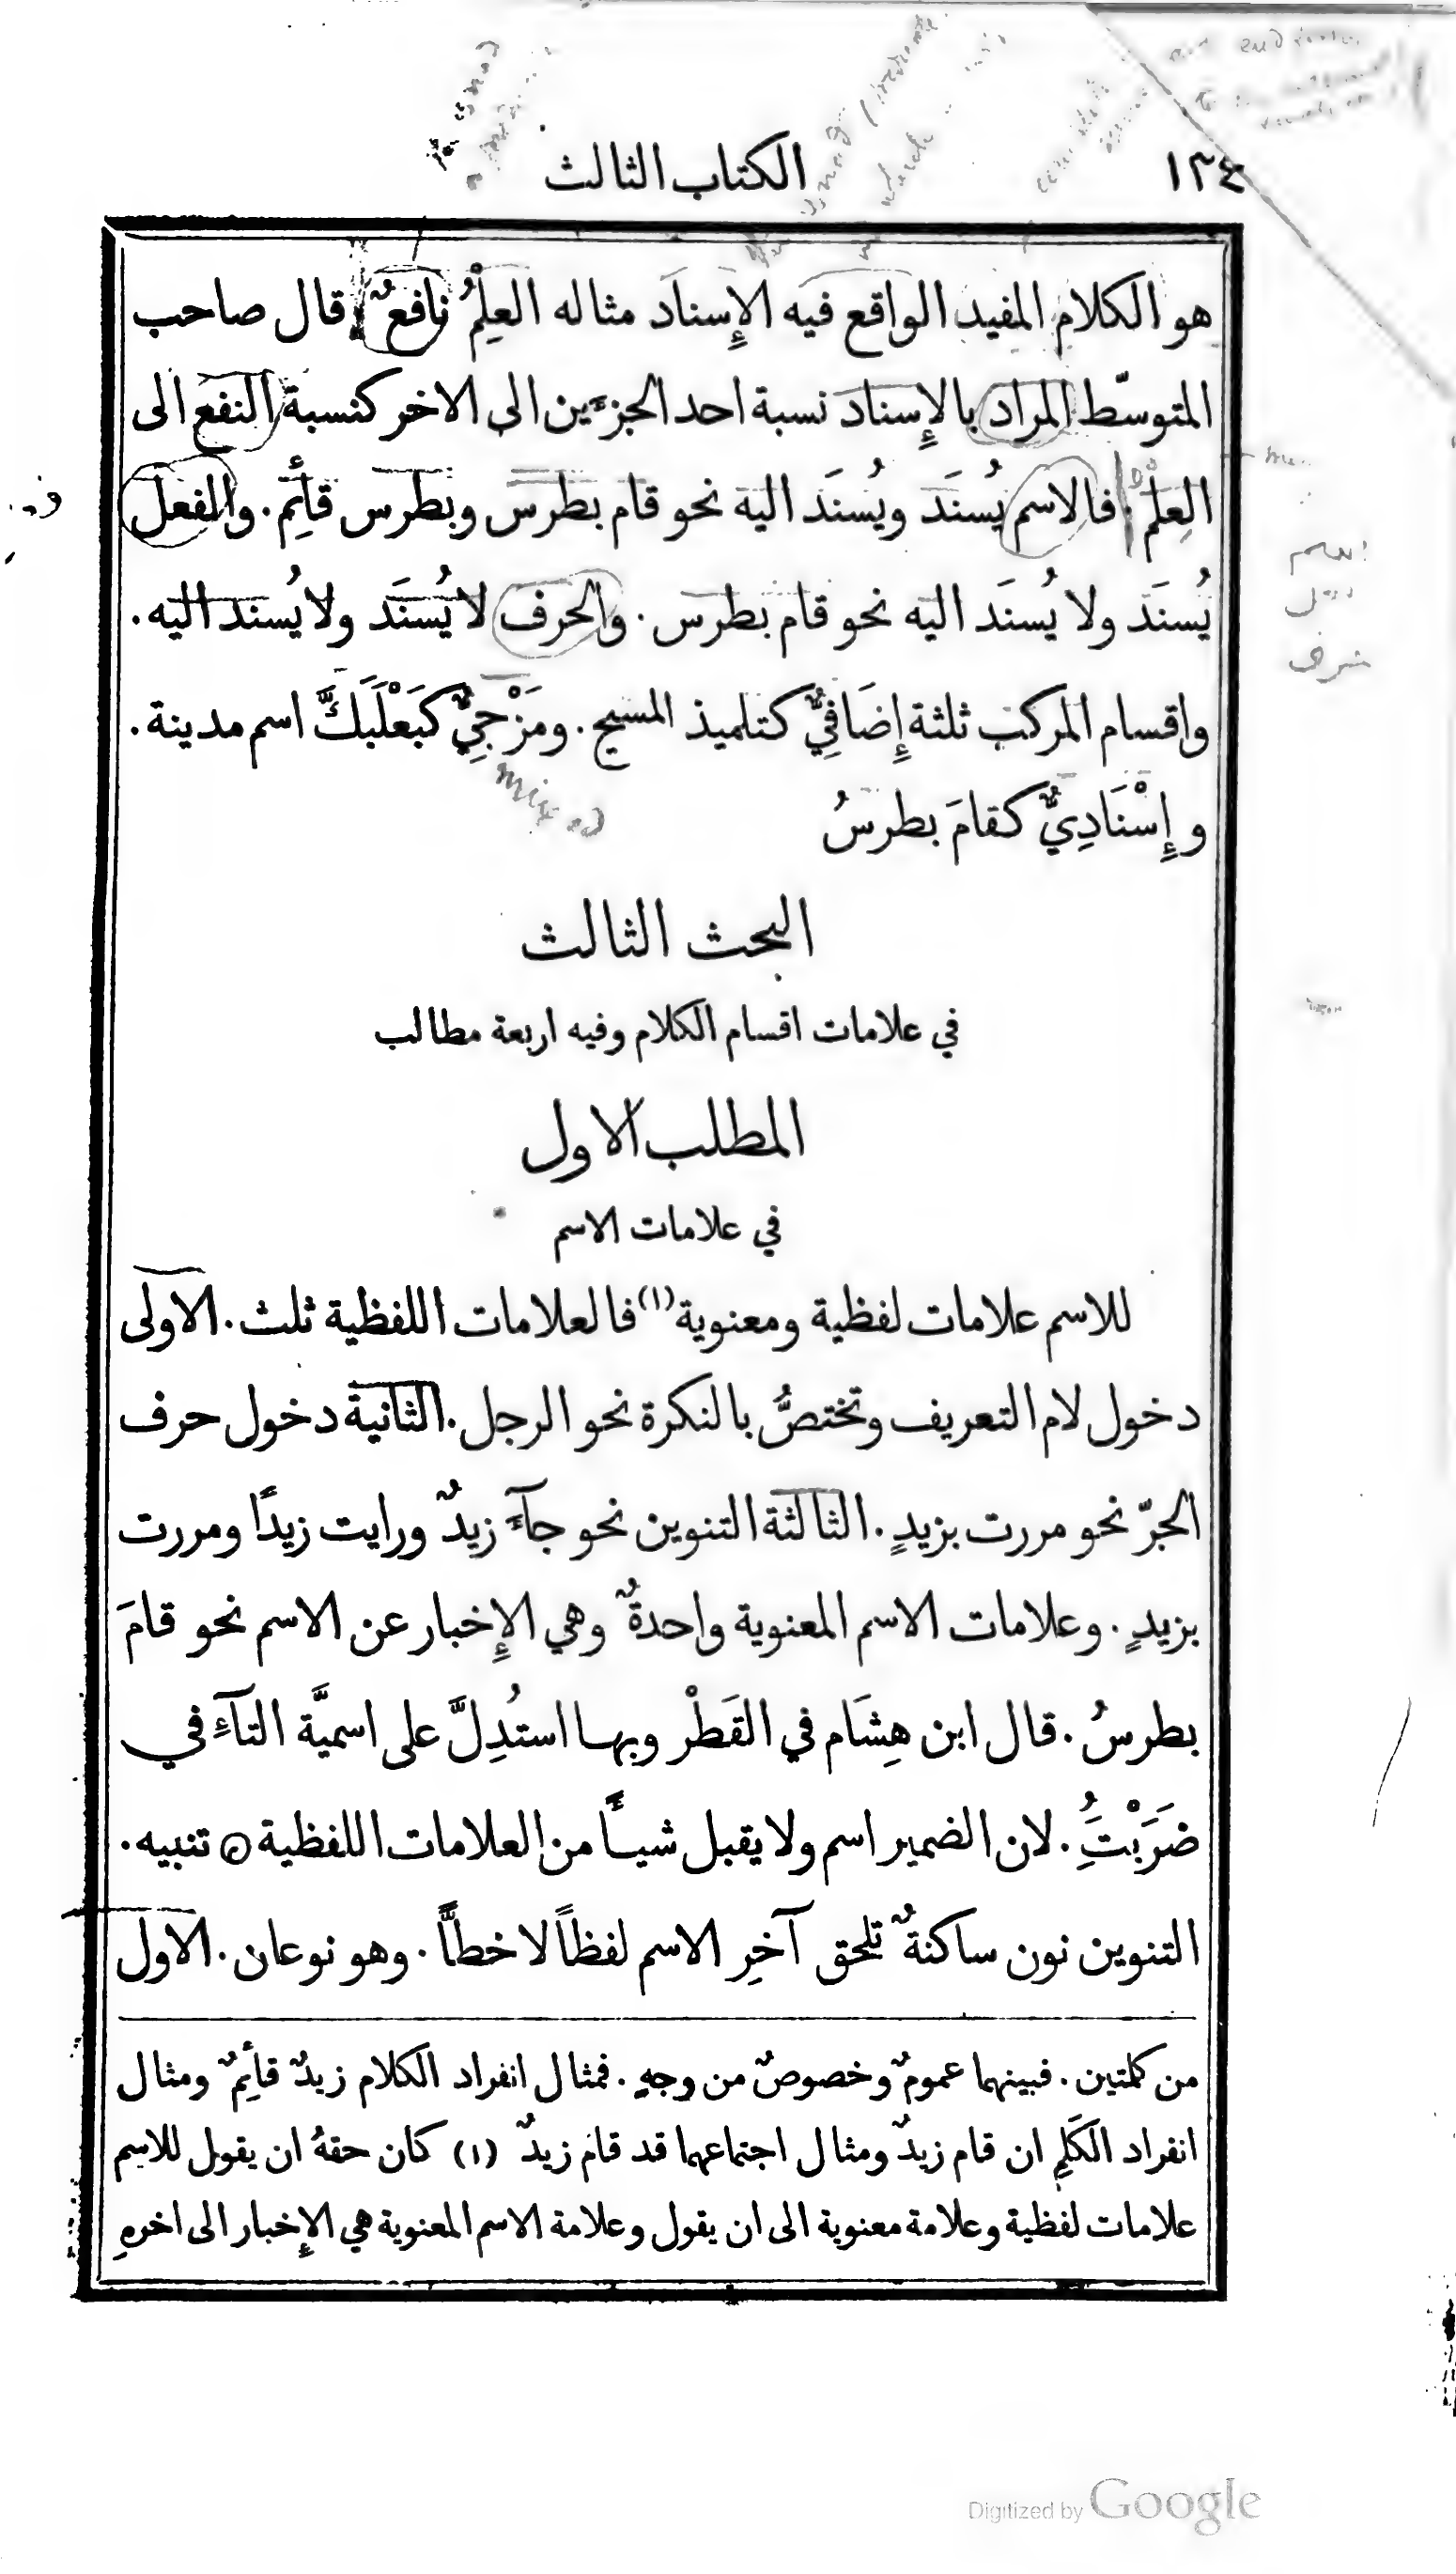 ١٣٤
الكتاب الثالث
هو الكلام المفيد الواقع فيه الإسناد مثاله العِلْمُ نافعٌ. قال صاحب
المتوسّط المراد بالإسناد نسبة احد الجزءين الى الاخر كنسبة النفع الى
العِلْم. فالاسم يُسنَد ويُسنَد اليه نحو قام بطرس وبطرس قائم. والفعل
يُسنَد ولا يُسنَد اليه نحو قام بطرس. والحرف لا يُسنَد ولا يُسند اليه.
واقسام المركب ثلثة إِضَافِيٌّ كتلميذ المسيح. ومَزْجِيٌّ كبَعْلَبَكَّ اسم مدينة.
وإِسْنَادِيٌّ كقامَ بطرسُ
mixed
البحث الثالث
في علامات اقسام الكلام وفيه اربعة مطالب
المطلب الاول
في علامات الاسم
للاسم علامات لفظية ومعنوية(١) فالعلامات اللفظية ثلث. الاولى
دخول لام التعريف وتختصُّ بالنكرة نحو الرجل. الثانية دخول حرف
الجرّ نحو مررت بزيدٍ. الثالثة التنوين نحو جآءَ زيدٌ ورايت زيدًا ومررت
بزيدٍ. وعلامات الاسم المعنوية واحدةٌ وهي الإِخبار عن الاسم نحو قامَ
بطرسُ. قال ابن هِشَام في القَطْر وبها استُدِلَّ على اسميَّة التآءِ في
ضَرَبْتَُِ. لان الضمير اسم ولا يقبل شيـأً من العلامات اللفظية ۞ تنبيه.
التنوين نون ساكنةٌ تلحق آخِر الاسم لفظاً لا خطاًّ. وهو نوعان. الاول
من كلمتين. فبينهما عمومٌ وخصوصٌ من وجهٍ. فمثال انفراد الكلام زيدٌ قائِمٌ ومثال
انفراد الكَلِمِ ان قام زيدٌ ومثال اجتماعهما قد قام زيدٌ (١) كان حقهُ ان يقول للاسم
علامات لفظية وعلامة معنوية الى ان يقول وعلامة الاسم المعنوية هي الإِخبار الى اخرهِ
Digitized by Google